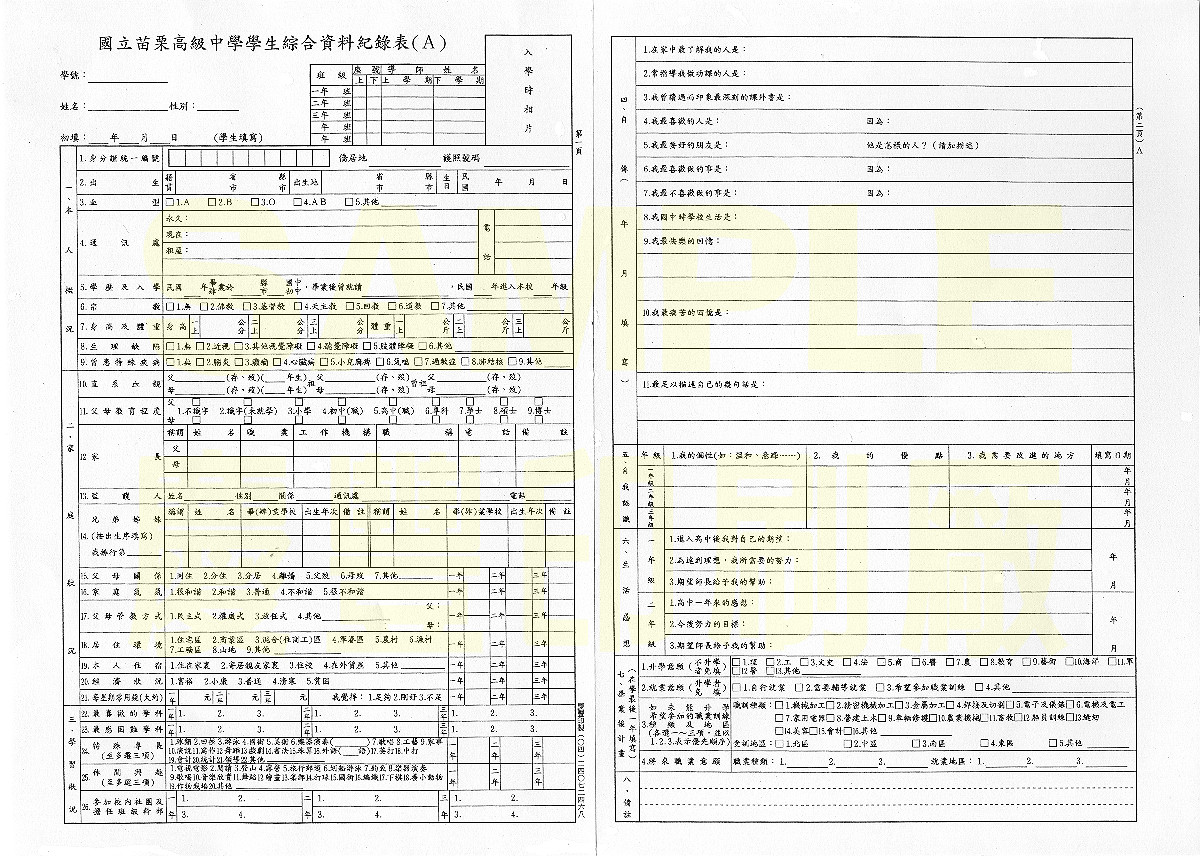 國立苗栗高級中學學生綜合資料紀錄表(A)
學號：
姓名： 性別：
初填： 年 月 日 (學生填寫)
班級 座號 導師姓名
上 下 上學期 下學期
一年 班
二年 班
三年 班
年 班
年 班
入學時相片
第一頁
一、本人概況
1.身分證統一編號 僑居地 護照號碼
2.出生 籍貫 省市 縣市 出生地 省市 縣市 生日 民國 年 月 日
3.血型 □1.A □2.B □3.O □4.AB □5.其他
4.通訊處 永久： 電話
現在：
租屋：
5.學歷及入學 民國 年畢肄業於 縣市 國中初中，畢業後曾就讀 ，民國 年進入本校 年級
6.宗教 □1.無 □2.佛教 □3.基督教 □4.天主教 □5.回教 □6.道教 □7.其他
7.身高及體重 身高 一上 公分 二上 公分 三上 公分 體重 一上 公斤 二上 公斤 三上 公斤
8.生理缺陷 □1.無 □2.近視 □3.其他視覺障礙 □4.聽覺障礙 □5.肢體障礙 □6.其他
9.曾患特殊疾病 □1.無 □2.肺炎 □3.癲癇 □4.心臟病 □5.小兒麻痺 □6.氣喘 □7.過敏症 □8.肺結核 □9.其他
二、家庭狀況
10.直系血親 父 (存、歿)( 年生) 祖 父 (存、歿) 曾祖 父 (存、歿)
母 (存、歿)( 年生) 母 (存、歿) 母 (存、歿)
11.父母教育程度 父 □ □ □ □ □ □ □ □ □
1.不識字 2.識字(未就學) 3.小學 4.初中(職) 5.高中(職) 6.專科 7.學士 8.碩士 9.博士
母 □ □ □ □ □ □ □ □ □
12.家長 稱謂 姓名 職業 工作機構 職稱 電話 備註
父
母
13.監護人 姓名 性別 關係 通訊處 電話
兄弟姊妹 稱謂 姓名 畢(肄)業學校 出生年次 備註 稱謂 姓名 畢(肄)業學校 出生年次 備註
14.(按出生序填寫)
我排行第
15.父母關係 1.同住 2.分住 3.分居 4.離婚 5.父歿 6.母歿 7.其他 一年 二年 三年
16.家庭氣氛 1.很和諧 2.和諧 3.普通 4.不和諧 5.很不和諧 一年 二年 三年
17.父母管教方式 1.民主式 2.權威式 3.放任式 4.其他 父： 母： 一年 二年 三年
18.居住環境 1.住宅區 2.商業區 3.混合(住商工)區 4.軍眷區 5.農村 6.漁村
7.工礦區 8.山地 9.其他 一年 二年 三年
19.本人住宿 1.住在家裏 2.寄居親友家裏 3.住校 4.在外賃居 5.其他 一年 二年 三年
20.經濟狀況 1.富裕 2.小康 3.普通 4.清寒 5.貧困 一年 二年 三年
21.每星期零用錢(大約) 一年 元 二年 元 三年 元 我覺得：1.足夠 2.剛好 3.不足 一年 二年 三年
三、學習狀況
22.最喜歡的學科 一年 1. 2. 3. 二年 1. 2. 3. 三年 1. 2. 3.
23.最感困難學科 1. 2. 3. 1. 2. 3. 1. 2. 3.
24.特殊專長(至多選三項) 一年 二年 三年
25.休閒興趣(至多選三項) 一年 二年 三年
26.參加校內社團及擔任班級幹部 一年 1. 2. 3. 4. 二年 1. 2. 3. 4. 三年 1. 2. 3. 4.
第二頁)A
四、自傳(年月填寫)
1.在家中最了解我的人是：
2.常指導我做功課的人是：
3.我曾讀過而印象最深刻的課外書是：
4.我最喜歡的人是： 因為：
5.我最要好的朋友是： 他是怎樣的人？(請加描述)
6.我最喜歡做的事是： 因為：
7.我最不喜歡做的事是： 因為：
8.我國中時學校生活是：
9.我最快樂的回憶：
10.我最痛苦的回憶是：
11.最足以描述自己的幾句話是：
五、自我認識
年級 1.我的個性(如：溫和、急躁……) 2.我的優點 3.我需要改進的地方 填寫日期
一年級 年 月
二年級 年 月
三年級 年 月
六、生活感想
一年級 1.進入高中後我對自己的期望：
2.為達到理想，我所需要的努力： 年
3.期望師長給予我的幫助： 月
二年級 1.高中一年來的感想：
2.今後努力的目標： 年
3.期望師長給予我的幫助： 月
七、畢業後計畫(在學最後一年填寫)
1.升學意願(不升學者免填) □1.理 □2.工 □3.文史 □4.法 □5.商 □6.醫 □7.農 □8.教育 □9.藝術 □10.海洋 □11.軍
□12.警 □13.其他
2.就業意願(升學者免填) □1.自行就業 □2.需要輔導就業 □3.希望參加職業訓練 □4.其他
3.如未能升學希望參加的職業訓練種類及地區(各選一～三項，並以1.2.3.表示優先順序)
職訓種類：□1.機械加工 □2.精密機械加工 □3.金屬加工 □4.銲接及切割 □5.電子及儀器 □6.電機及電工
□7.家用電器 □8.營建土木 □9.車輛修護 □10.農業機械 □11.畜牧 □12.船員訓練 □13.縫切
□14.美容 □15.會計 □16.其他
受訓地區：□1.北區 □2.中區 □3.南區 □4.東區 □5.其他
4.將來職業意願 職業種類：1. 2. 3. 就業地區：1. 2. 3.
八、備註
SAMPLE